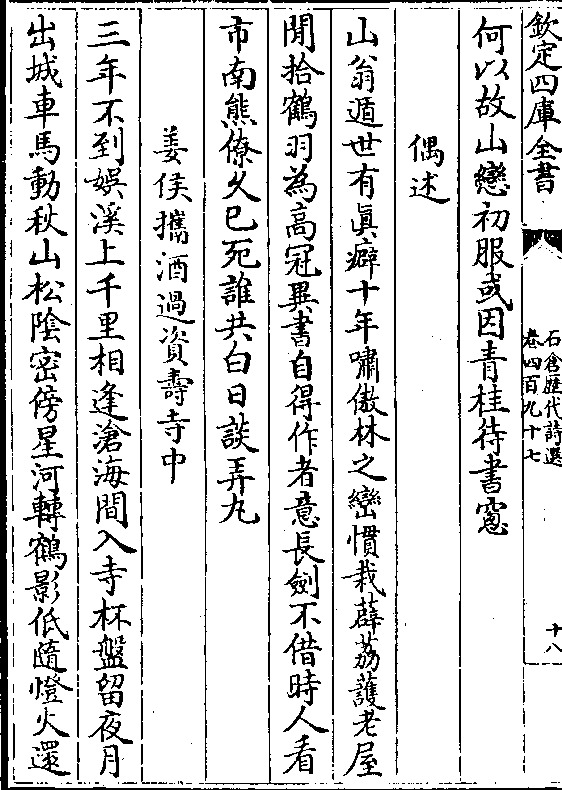 欽定四庫全書
石倉歷代詩選
卷四百九十七
十八
何以故山戀初服或因青桂待書窻
偶述
山翁遁世有真癖十年嘯傲林之巒慣栽薜荔護老屋
閒拾鶴羽為高冠異書自得作者意長劍不借時人看
市南熊僚久已死誰共白日談弄丸
姜侯攜酒過資壽寺中
三年不到娛溪上千里相逢滄海間入寺杯盤留夜月
出城車馬動秋山松陰密傍星河轉鶴影低隨燈火還